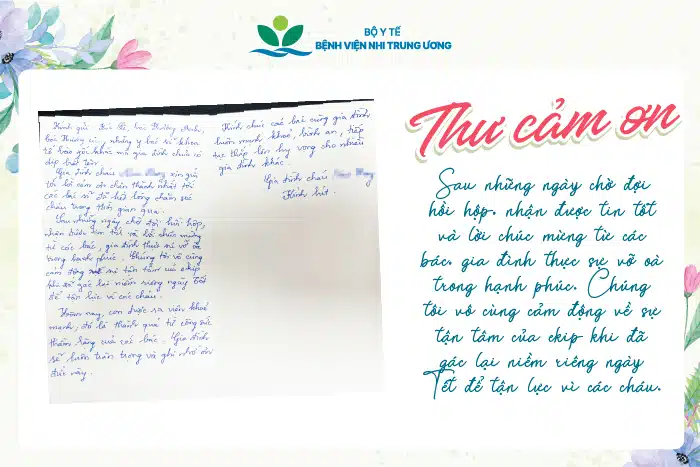 BỘ Y TẾ
BỆNH VIỆN NHI TRUNG ƯƠNG
Kính gửi Bác Hà, bác Phương Anh,
bác Hương cùng những y bác sĩ khoa
tế bào gốc khác mà gia đình cháu có
dịp biết tên.
Gia đình cháu xin gửi
tới lời cảm ơn chân thành nhất tới
các bác sĩ đã hết lòng chăm sóc
cháu trong thời gian qua.
Sau những ngày chờ đợi hồi hộp,
nhận được tin tốt và lời chúc mừng
từ các bác, gia đình thực sự vỡ oà
trong hạnh phúc. Chúng tôi vô cùng
cảm động về sự tận tâm của ekip
khi đã gác lại niềm riêng ngày Tết
để tận lực vì các cháu.
Hôm nay, con được ra viện khoẻ
mạnh, đó là thành quả từ công sức
thầm lặng của các bác. Gia đình
sẽ luôn trân trọng và ghi nhớ ơn
đức này.
Kính chúc các bác cùng gia đình
luôn mạnh khoẻ, bình an, tiếp
tục thắp lên hy vọng cho nhiều
gia đình khác.
Gia đình cháu
Kính bút.
Thư cảm ơn
Sau những ngày chờ đợi
hồi hộp, nhận được tin tốt
và lời chúc mừng từ các
bác, gia đình thực sự vỡ oà
trong hạnh phúc. Chúng
tôi vô cùng cảm động về sự
tận tâm của ekip khi đã
gác lại niềm riêng ngày
Tết để tận lực vì các cháu.